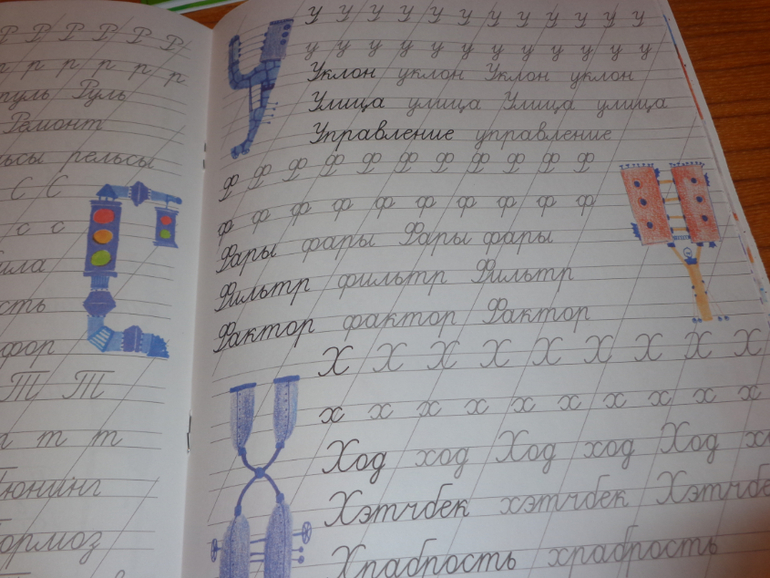 Р Р Р Р Р Р
р р р р р р
Руль
Ремонт
рельсы
С С
с с
Т Т
т т
Тюнинг
Тормоз
У У У У У У У У У У У У
у у у у у у у у у у у у
Уклон уклон Уклон уклон
Улица улица Улица улица
Управление управление
Ф Ф Ф Ф Ф Ф Ф Ф Ф Ф Ф
ф ф ф ф ф ф ф ф ф ф ф
Фары фары Фары фары
Фильтр фильтр Фильтр
Фактор фактор Фактор
Х Х Х Х Х Х Х Х Х
х х х х х х х х х х
Ход ход Ход ход Ход
Хэтчбек хэтчбек Хэтчбе
Храбрость храбрость